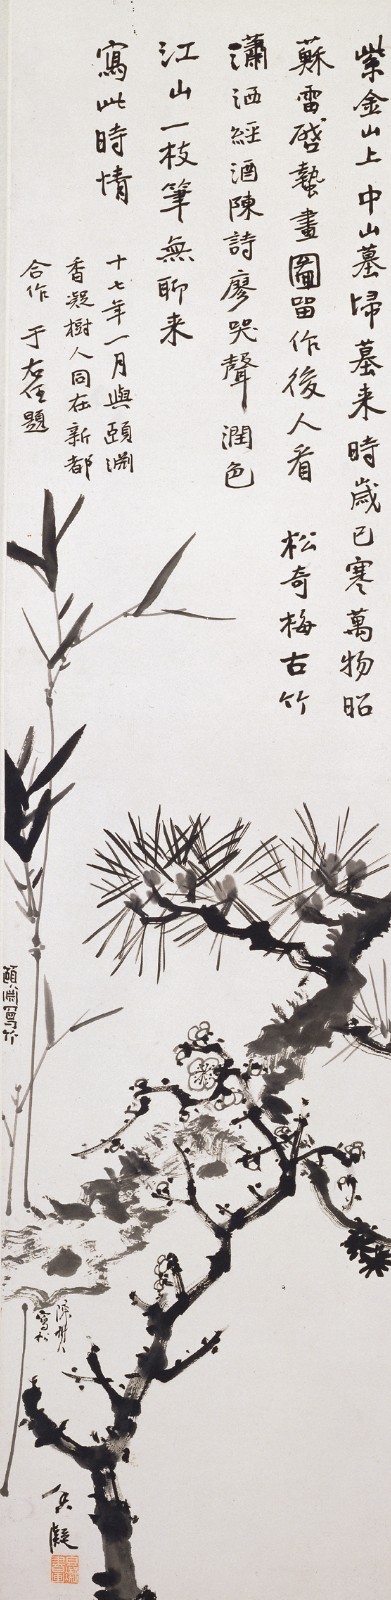 紫金山上中山墓掃墓来時歲已寒萬物昭
蘇雷啓蟄畫圖留作後人看 松奇梅古竹
瀟洒經酒陳詩廖哭聲潤色
江山一枝筆無聊来
寫此時情
十七年一月與頤淵
香凝樹人同在新都
合作 于右任題
頤淵写竹
陳樹人
寫松
香凝